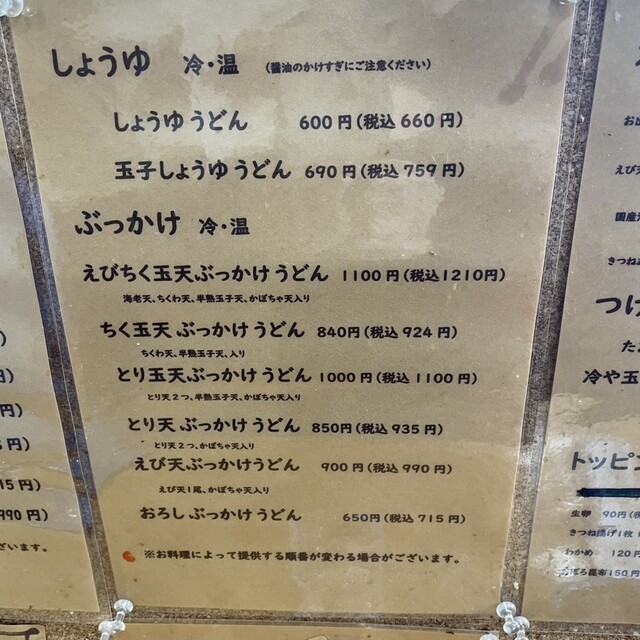 しょうゆ 冷・温 (醤油のかけすぎにご注意ください)
しょうゆうどん 600円(税込660円)
玉子しょうゆうどん 690円(税込759円)
ぶっかけ 冷・温
えびちく玉天ぶっかけうどん 1100円(税込1210円)
海老天、ちくわ天、半熟玉子天、かぼちゃ天入り
ちく玉天ぶっかけうどん 840円(税込924円)
ちくわ天、半熟玉子天、入り
とり玉天ぶっかけうどん 1000円(税込1100円)
とり天2つ、半熟玉子天、かぼちゃ天入り
とり天ぶっかけうどん 850円(税込935円)
とり天2つ、かぼちゃ天入り
えび天ぶっかけうどん 900円(税込990円)
えび天1尾、かぼちゃ天入り
おろしぶっかけうどん 650円(税込715円)
※お料理によって提供する順番が変わる場合がございます。
円)
円)
15円)
990円)
ざいます。
えび天
国産
きつね
つけ
冷や玉
トッピン
生卵 90円(税
きつね揚げ1枚 1
わかめ 120円
ぼろ昆布150円